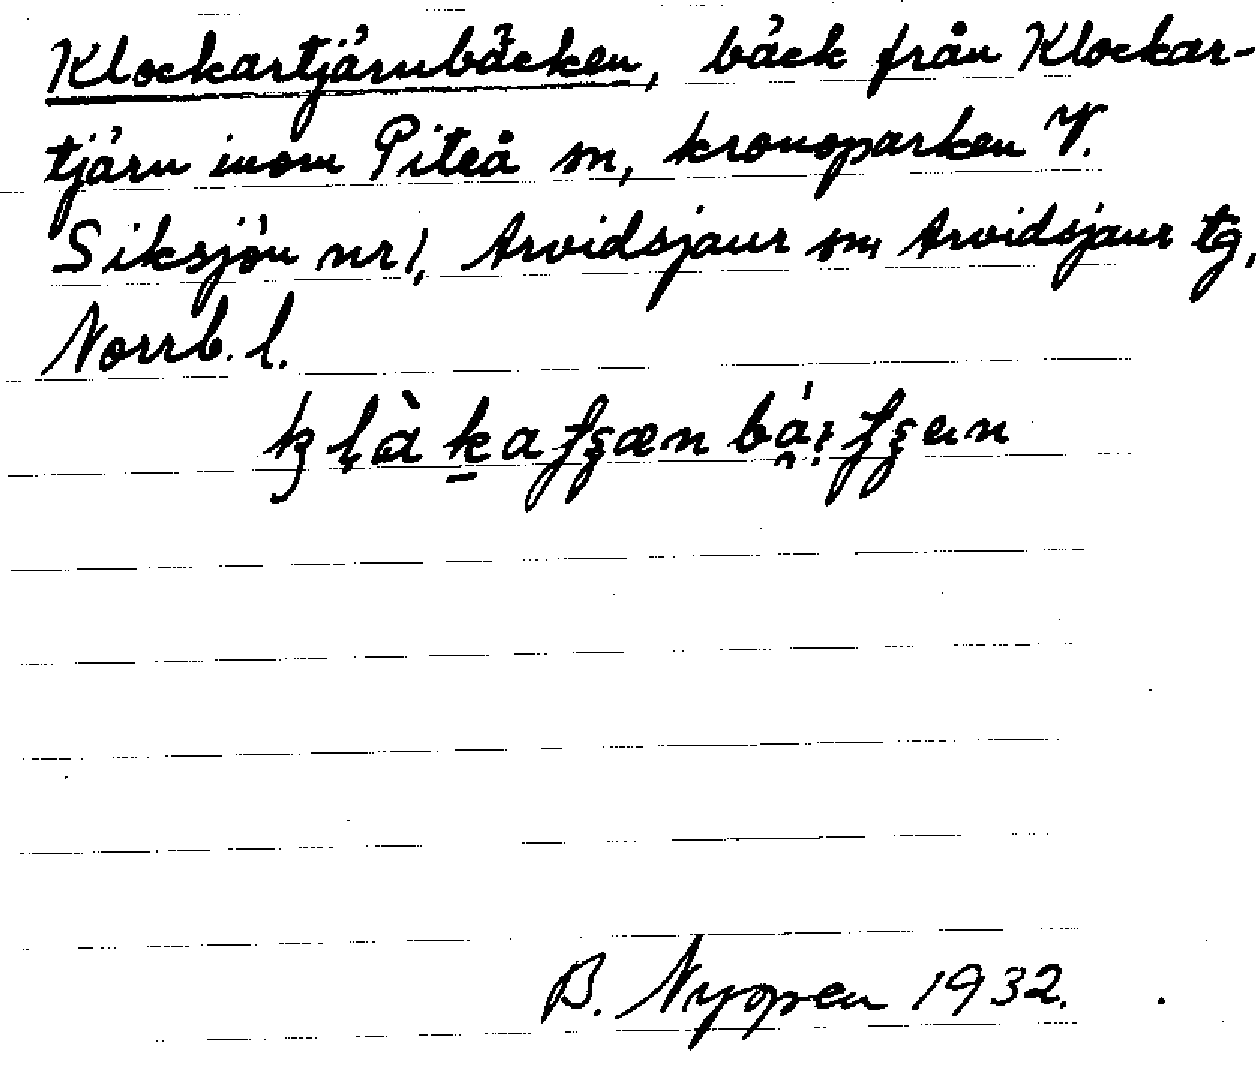 Klockartjärnbäcken, bäck från Klockar-
tjärn inom Piteå sn, kronoparken V.
Siksjön nr 1, Arvidsjaur sn, Arvidsjaur tg,
Norrb. l.
B. Nyopen 1932.